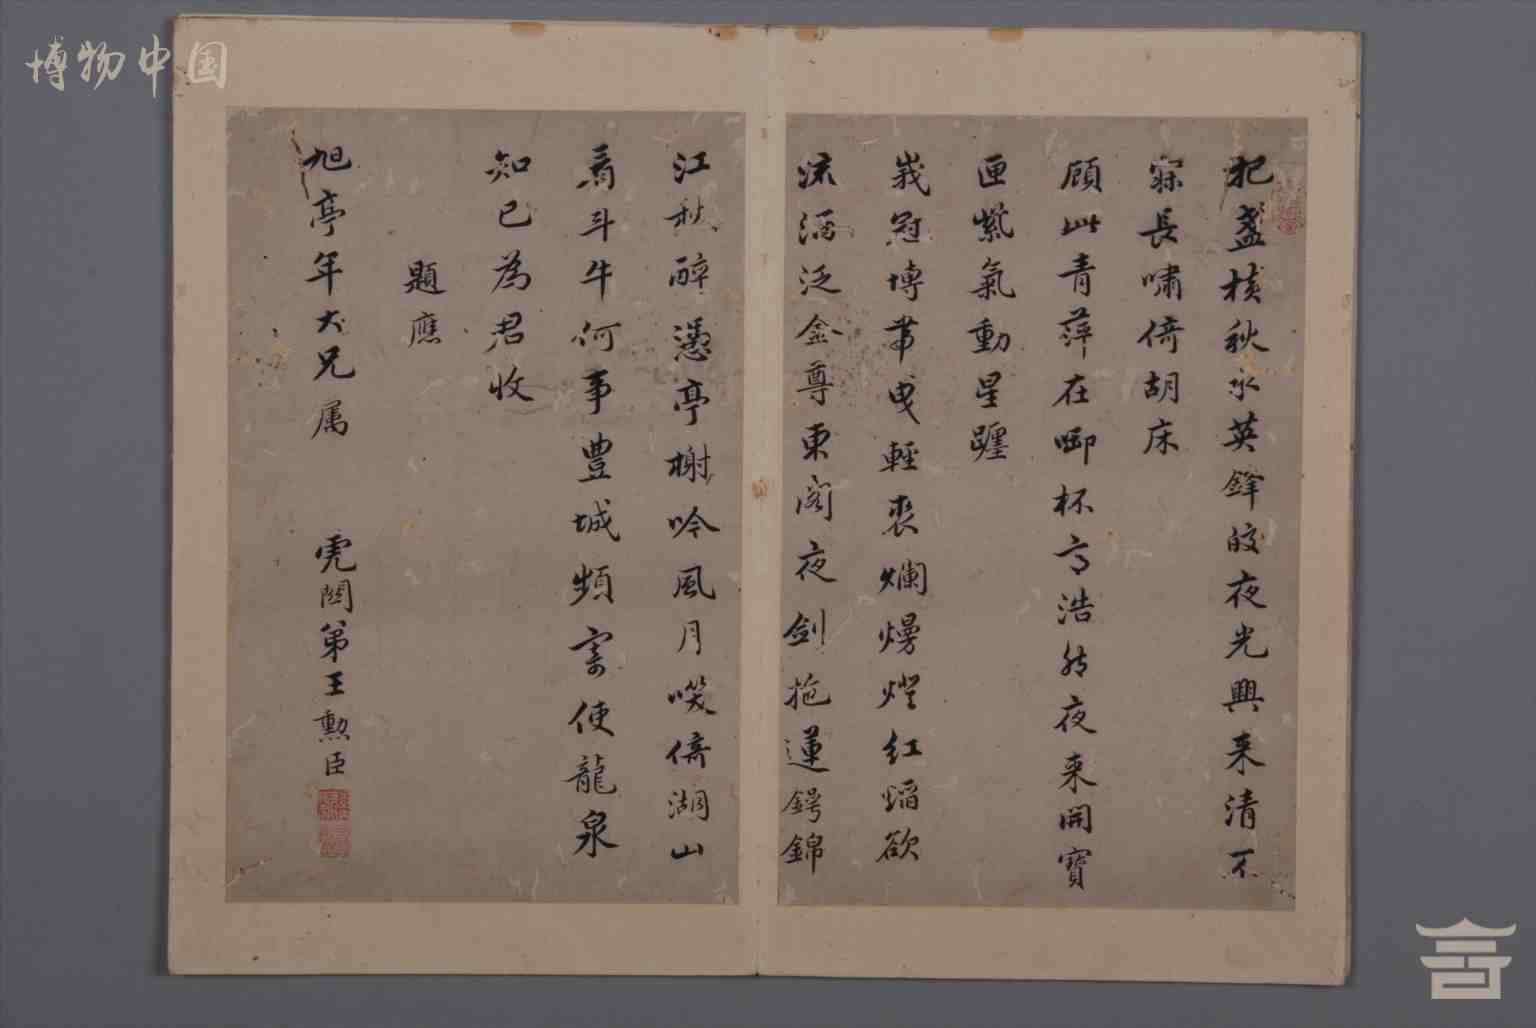 把盞撫秋水英鋒皎夜光興来清不
寐長嘯倚胡床
顧此青萍在啣杯高浩然夜来開寶
匣紫氣動星躔
峩冠博帯曳輕裘爛熳燈紅焰欲
流酒泛金尊東閣夜劍拖蓮鍔錦
江秋醉憑亭榭吟風月嘆倚湖山
看斗牛何事豊城頻寄使龍泉
知已為君收
題應
旭亭年大兄属
弟王勲臣
博物中国